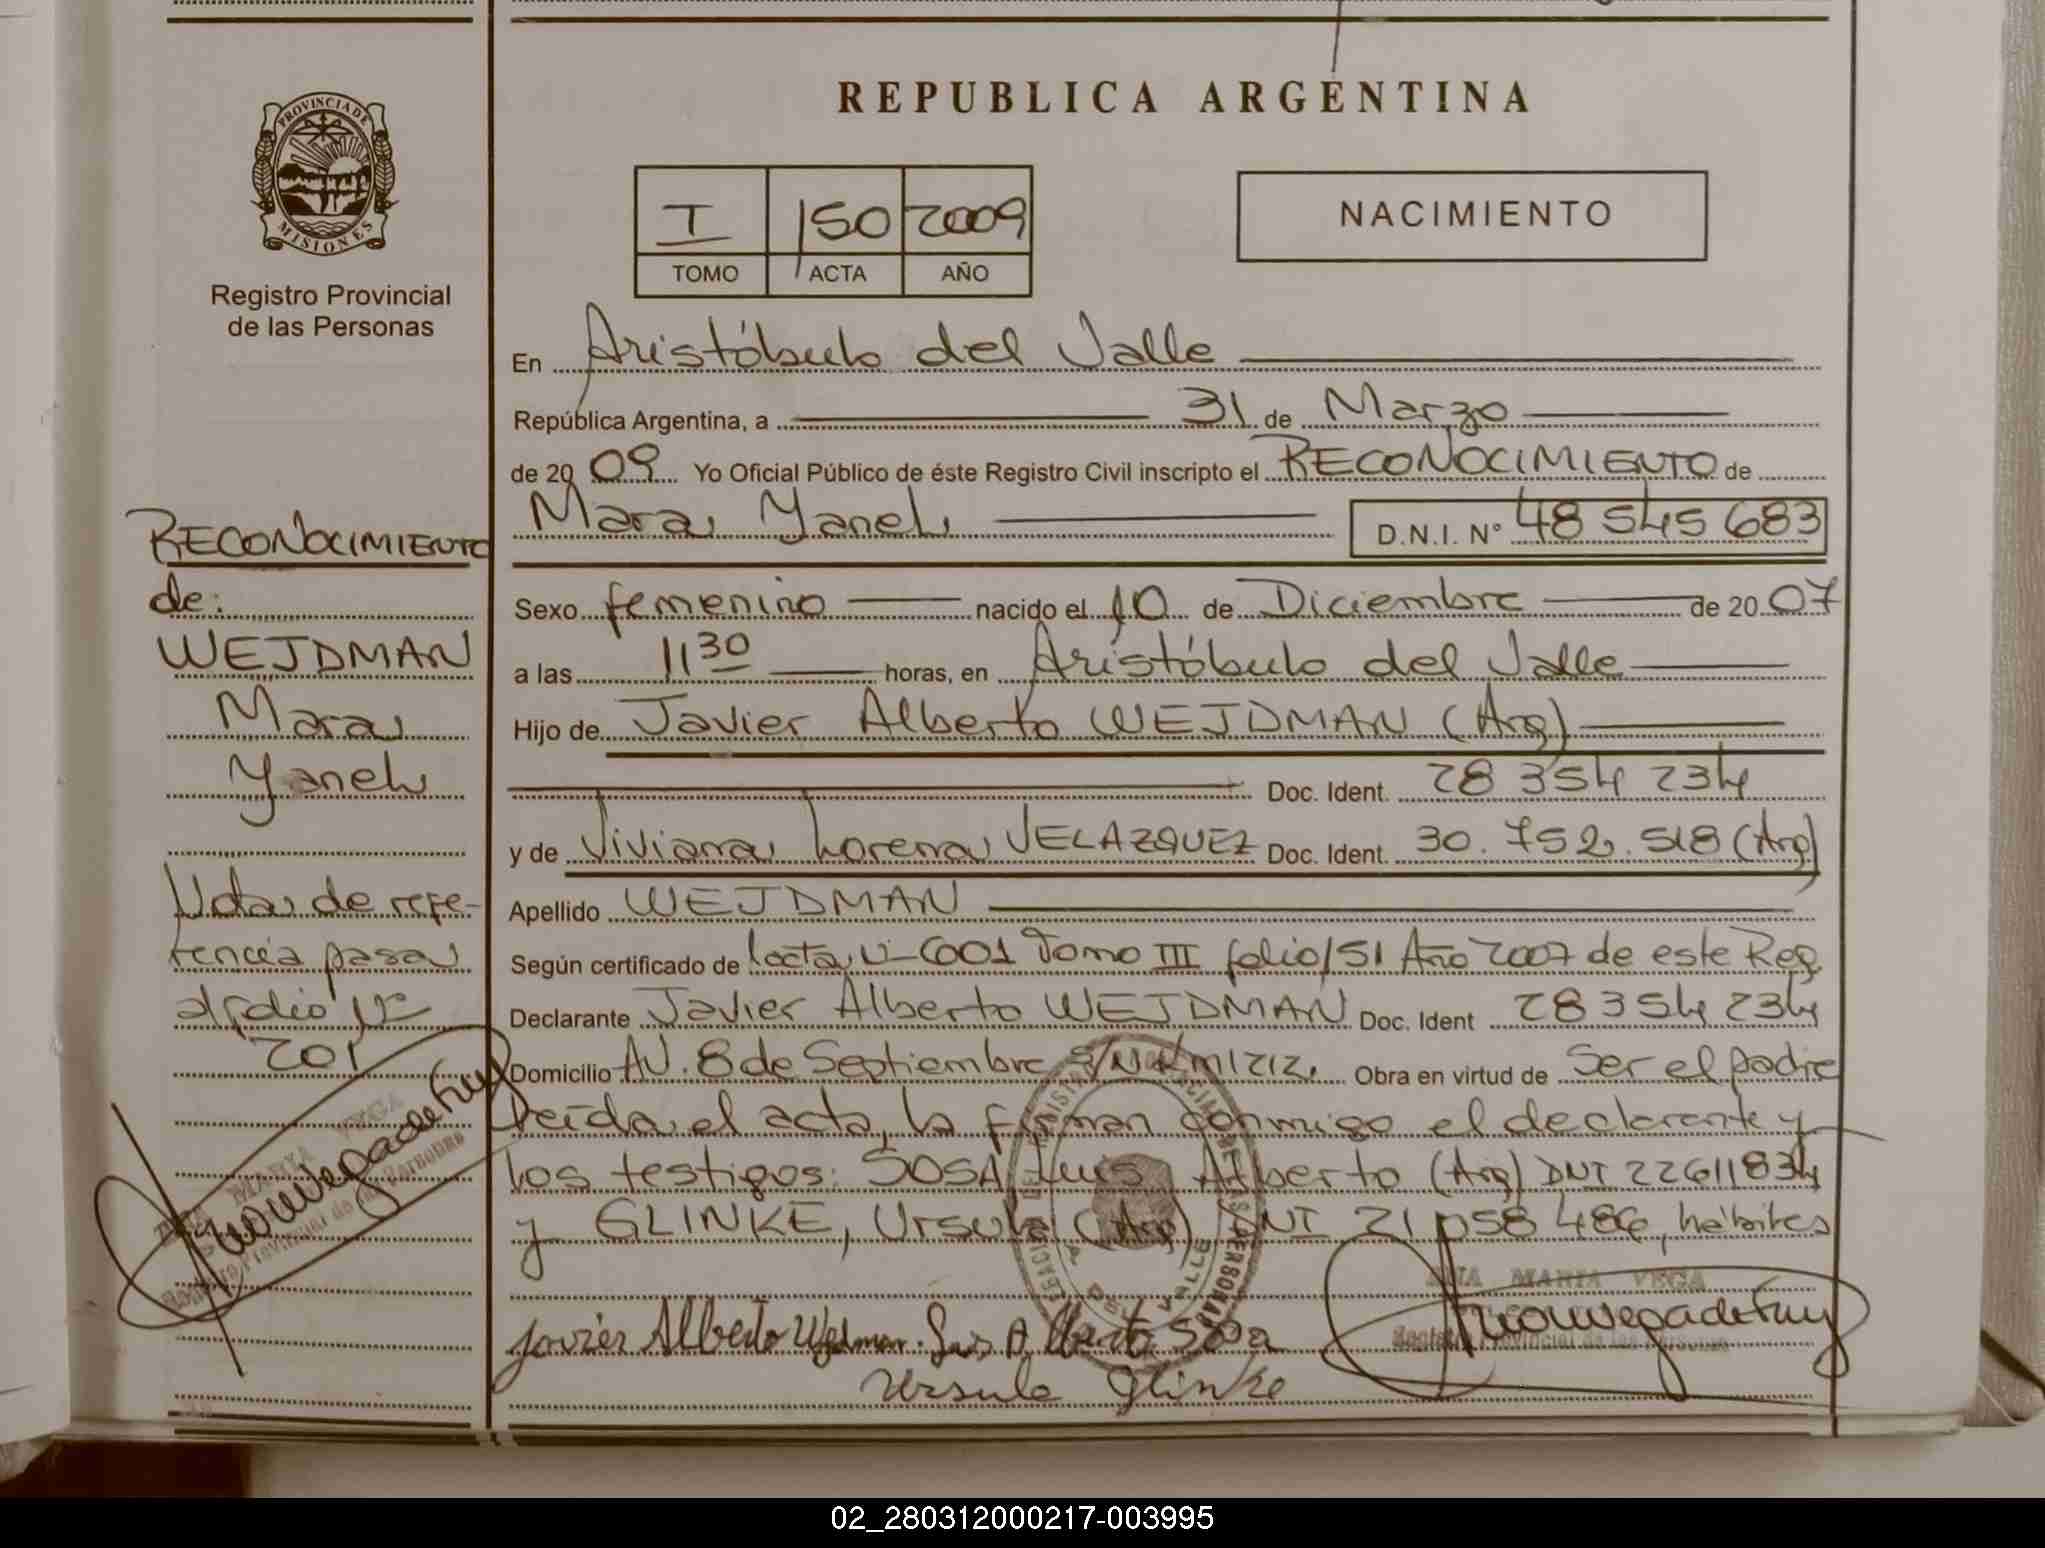 PROVINCIA DE
MISIONES
Registro Provincial
de las Personas
RECONOCIMIENTO
de:
WEJDMAN
Mara
Yanel
Nota de refe-
rencia pasa
al folio Nº
201
REPUBLICA ARGENTINA
I 150 2009
TOMO ACTA AÑO
NACIMIENTO
En Aristóbulo del Valle
República Argentina, a 31 de Marzo
de 2009 Yo Oficial Público de éste Registro Civil inscripto el RECONOCIMIENTO de
Mara Yanel D.N.I. Nº 48 545 683
Sexo femenino nacido el 10 de Diciembre de 2007
a las 11 30 horas, en Aristóbulo del Valle
Hijo de Javier Alberto WEJDMAN (Arg)
Doc. Ident. 28 354 234
y de Viviana Lorena VELAZQUEZ Doc. Ident. 30.752.518 (Arg)
Apellido WEJDMAN
Según certificado de acta Tomo III folio 151 Año 2007 de este Reg
Declarante Javier Alberto WEJDMAN Doc. Ident 28 354 234
Domicilio AV. 8 de Septiembre S/N Km 1212. Obra en virtud de Ser el padre
leída el acta, la firman conmigo el declarante y
los testigos: SOSA, Luis Alberto (Arg) DNI 22611834
y GLINKE, Ursula (Arg) DNI 21 058 486, hábiles
ANA MARIA VEGA
Registro Provincial de las Personas
Javier Alberto Wejdman Luis Alberto Sosa
Ursula Glinke
02_280312000217-003995